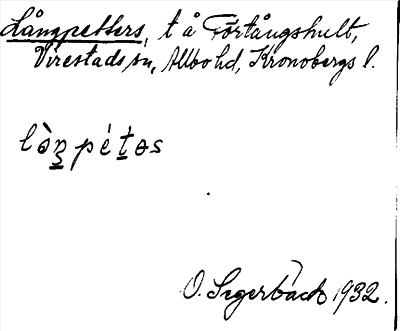 Långpetters, t å Förtångshult,
Virestads sn, Allbo hd, Kronobergs l.
lòn̠ péṯəs
O. Segerbäck 1932.